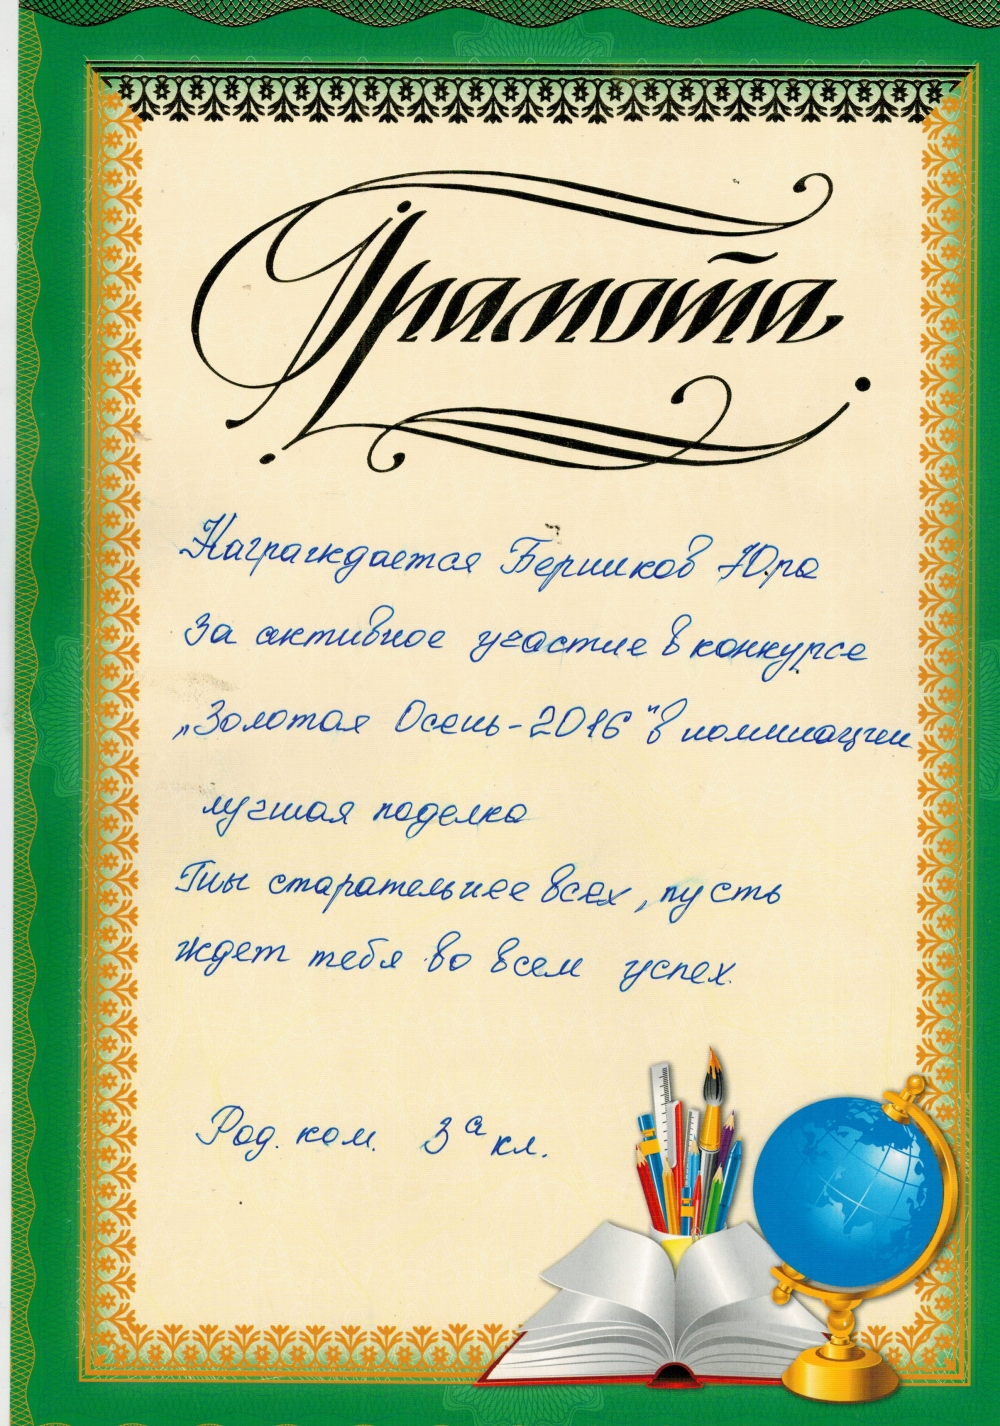 Грамота
Награждается Бершков Юра
За активное участие в конкурсе
„Золотая Осень-2016" в номинации
лучшая поделка
Ты старательнее всех, пусть
ждет тебя во всем успех.
Род. ком. 3а кл.